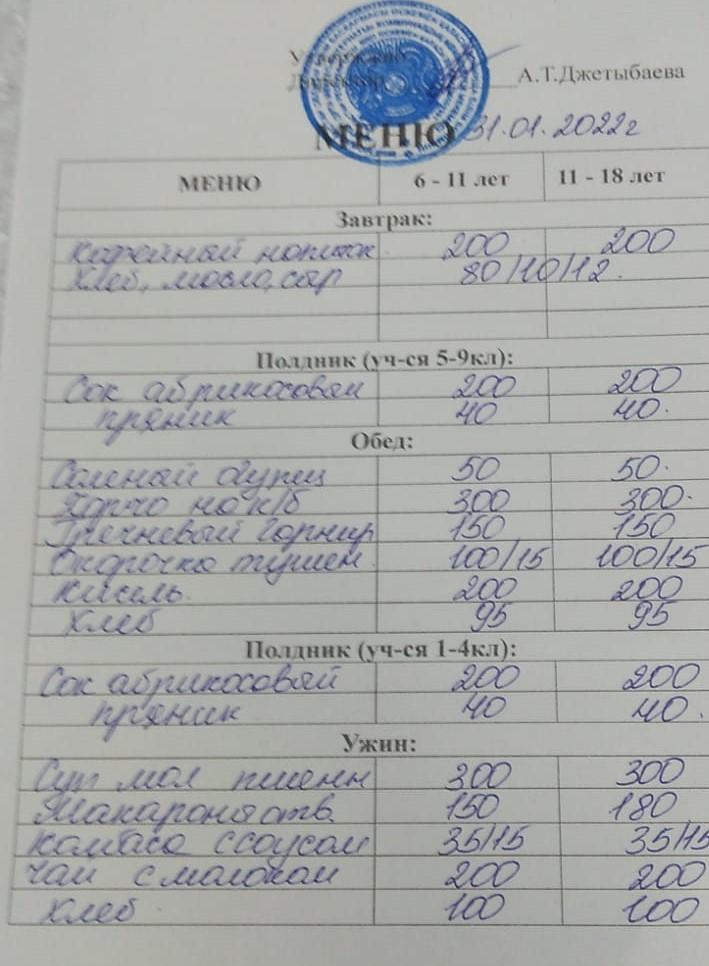 Утверждаю
Директор А.Т.Джетыбаева
МЕНЮ 31.01.2022г
МЕНЮ 6 - 11 лет 11 - 18 лет
Завтрак:
Кофейный напиток 200 200
Хлеб, масло, сыр 80/10/12.
Полдник (уч-ся 5-9кл):
Сок абрикосовый 200 200
пряник 40 40.
Обед:
Соленый огурец 50 50.
Харчо на к/б 300 300.
Гречневый гарнир 150 150
Окорочка тушен 100/15 100/15
Кисель 200 200
Хлеб 95 95
Полдник (уч-ся 1-4кл):
Сок абрикосовый 200 200
пряник 40 40.
Ужин:
Суп мол пшенн 300 300
Макароны отв. 150 180
колбаса с соусом 35/15 35/15
Чай с молоком 200 200
Хлеб 100 100